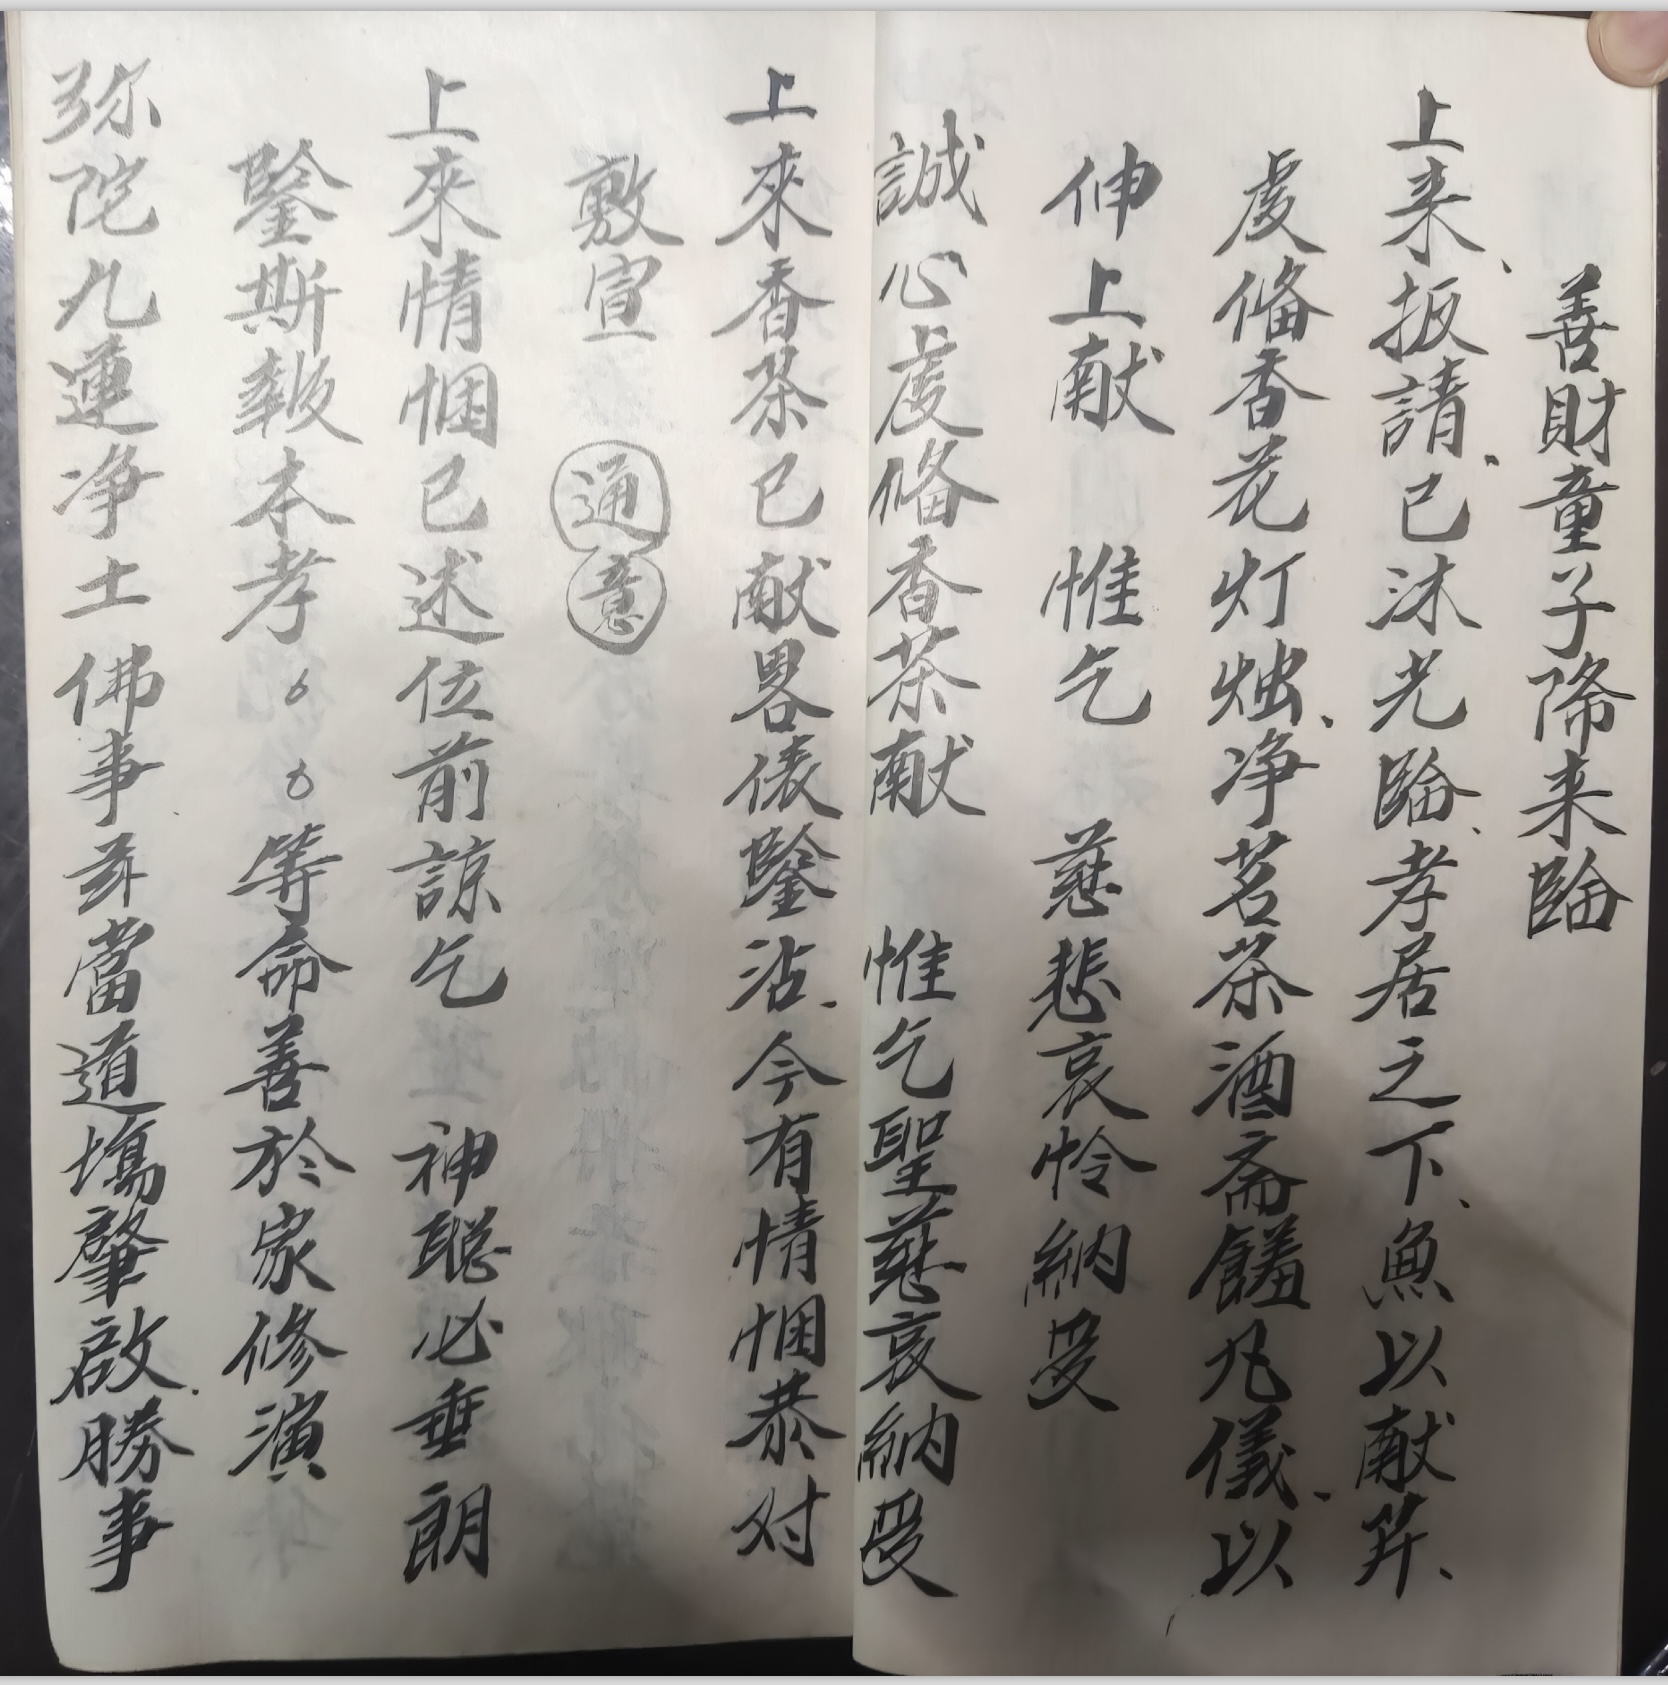 善財童子降来臨
上来扳請已沐光臨孝居之下魚以献芹
虔俻香花灯烛净茗茶酒斋饈凡儀以
伸上献 惟乞 慈悲哀怜納受
誠心虔俻香茶献 惟乞聖慈哀納受
上來香茶已献畧俵鑒沾今有情悃恭对
敷宣 通意
上來情悃已述位前諒乞 神聪必垂朗
鑒斯報本孝 等命善於家修演
弥陀九蓮净土佛事兹當道塲肇啟勝事